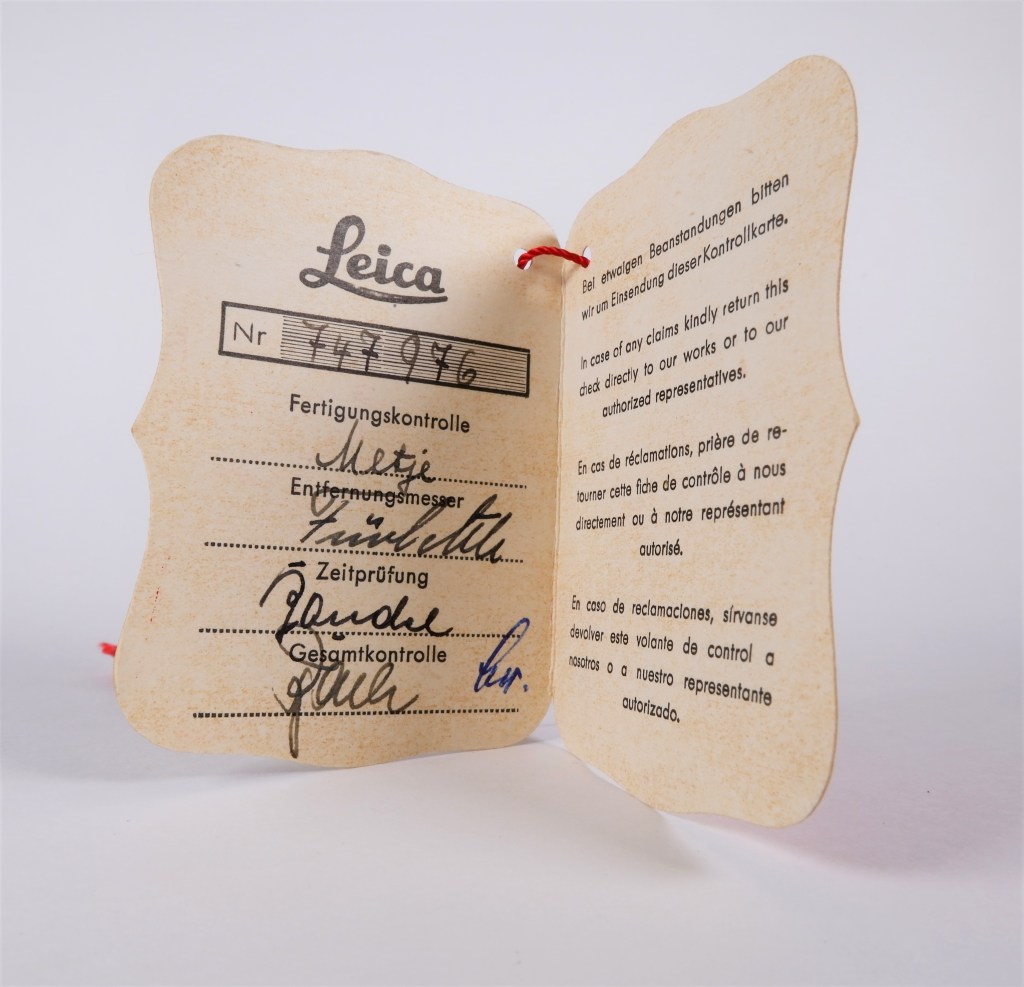 Leica
Nr 747976
Fertigungskontrolle
Metje
Entfernungsmesser
Zeitprüfung
Gesamtkontrolle
Bei etwaigen Beanstandungen bitten
wir um Einsendung dieser Kontrollkarte.
In case of any claims kindly return this
check directly to our works or to our
authorized representatives.
En cas de réclamations, prière de re-
tourner cette fiche de contrôle à nous
directement ou à notre représentant
autorisé.
En caso de reclamaciones, sírvanse
devolver este volante de control a
nosotros o a nuestro representante
autorizado.